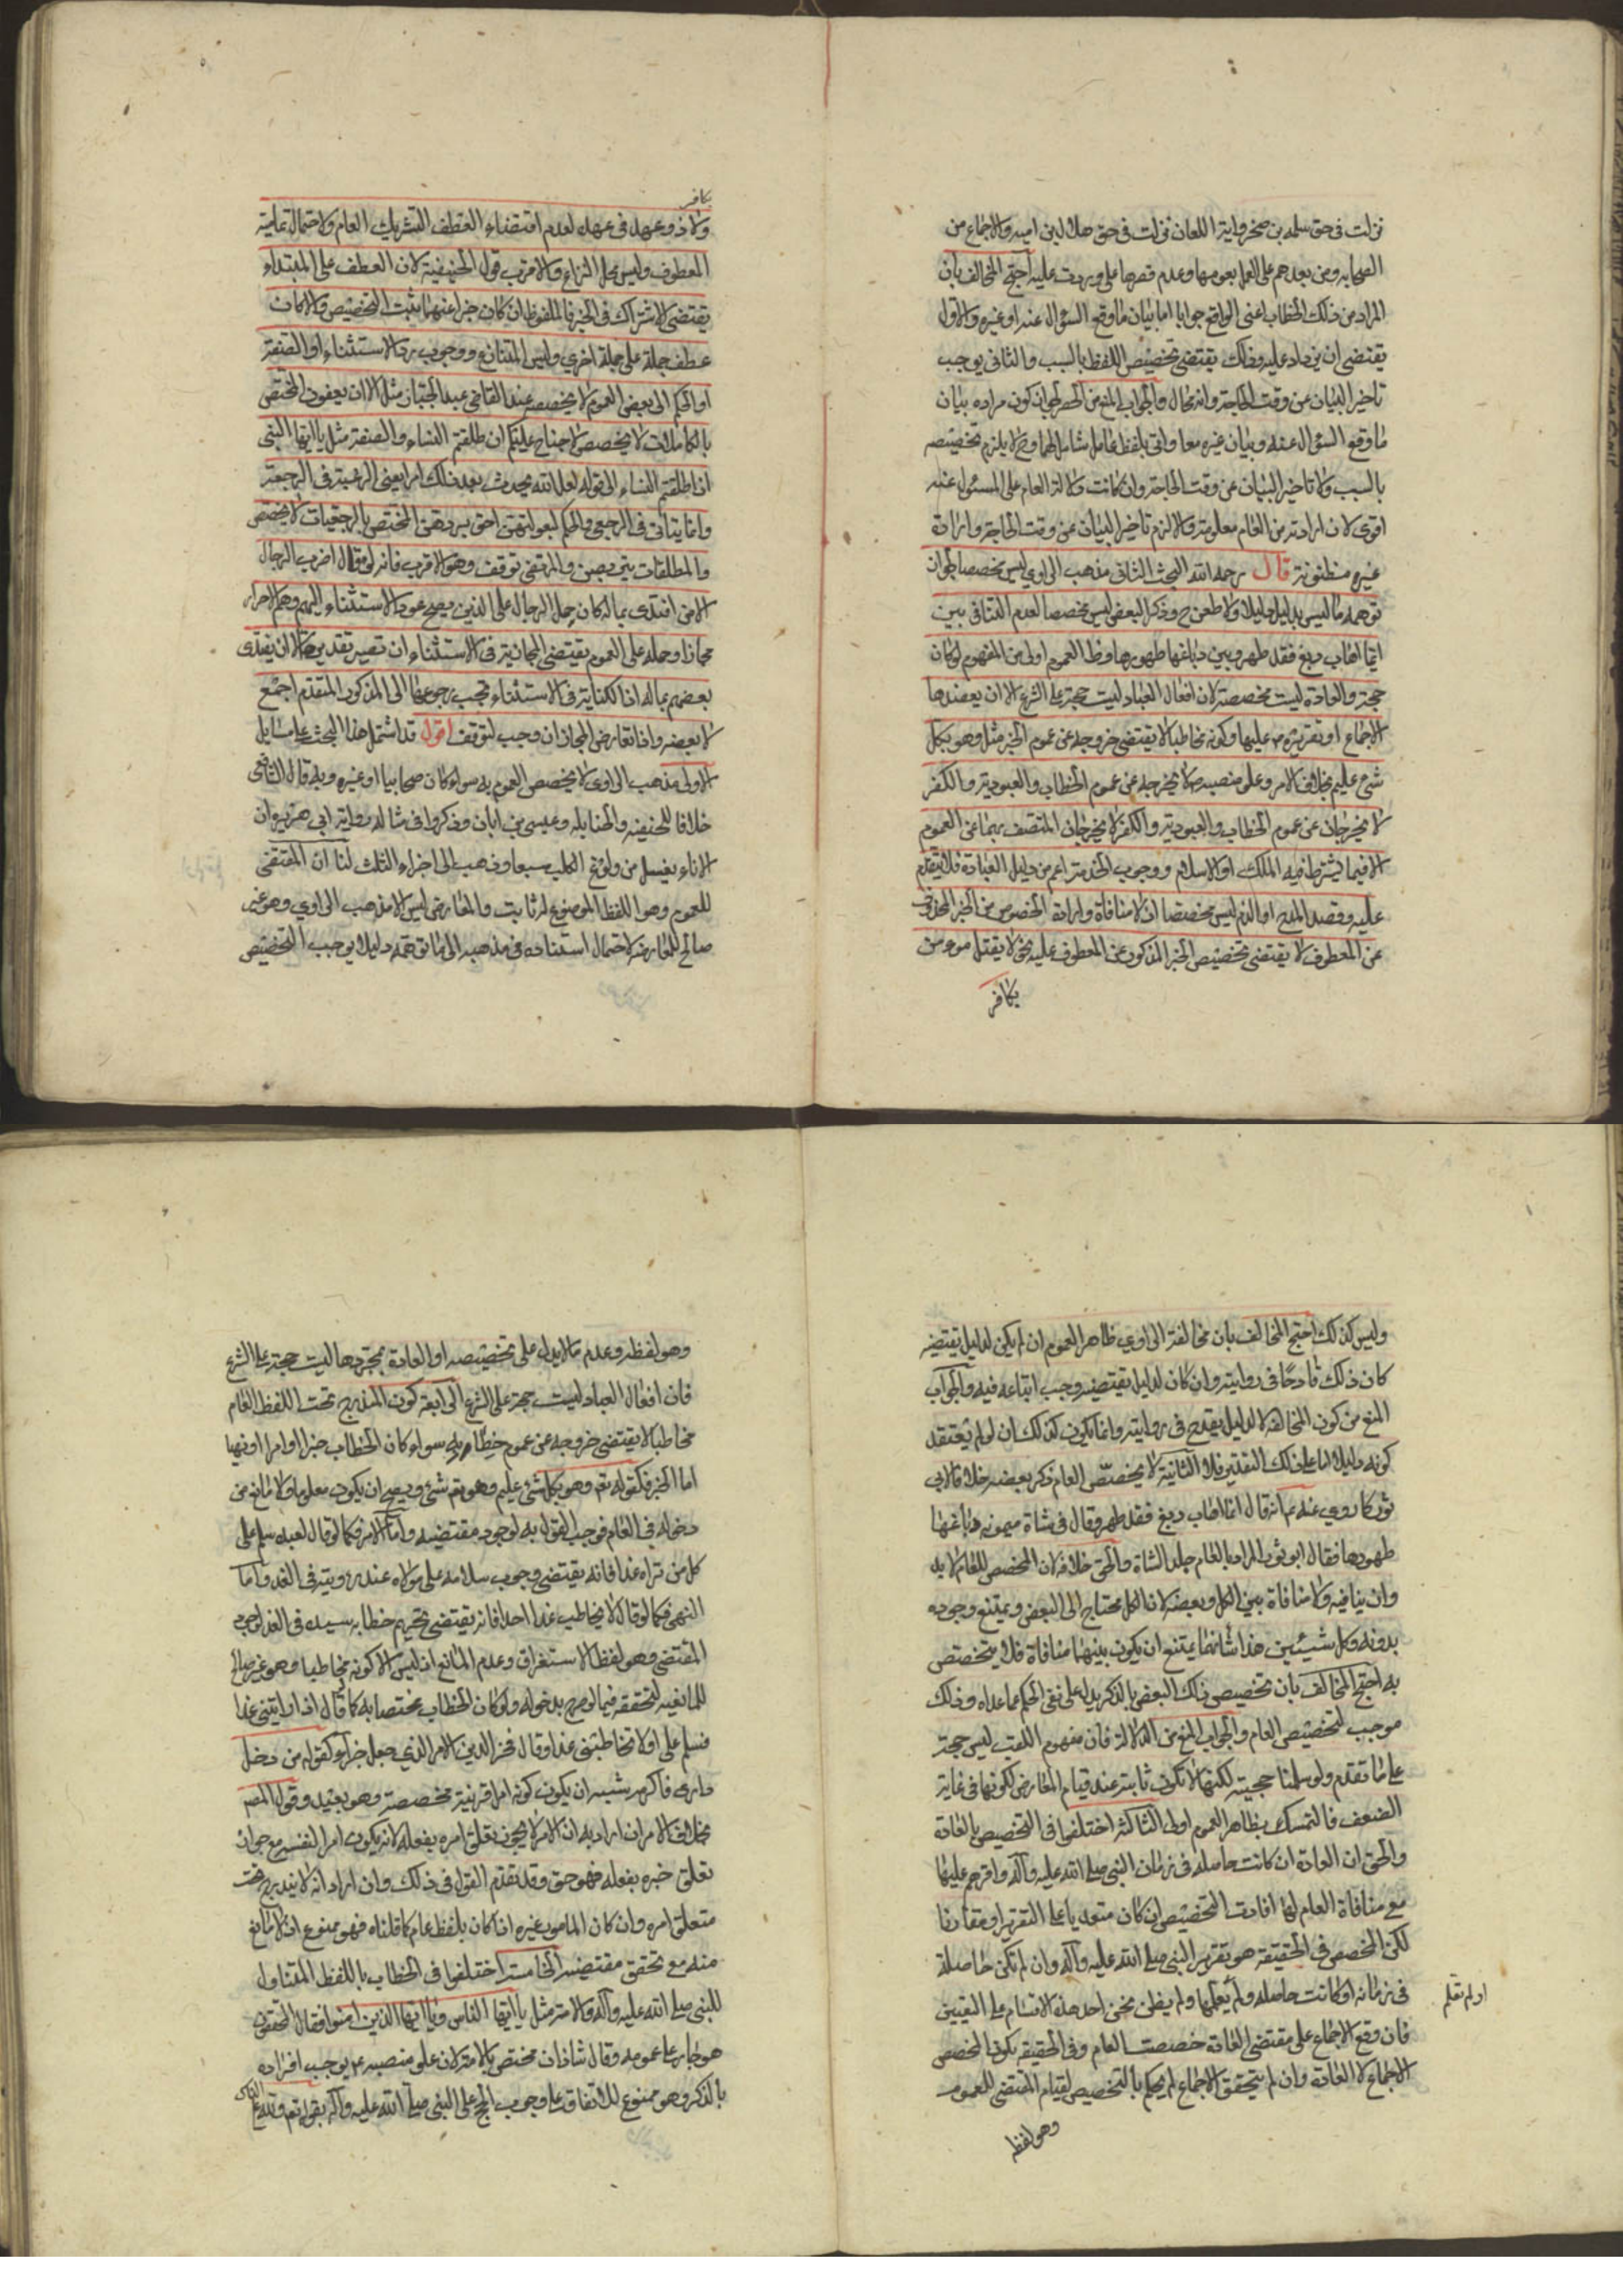 نزلت فى حق سلمه بن صخر واية اللعان نزلت فى حق هلال بن اميه والاجماع من
الصحابه ومن بعدهم على العمل بعمومها وعدم قصرها على ما وردت عليه احتج المخالف بان
المراد من ذلك الخطاب اعنى الواقع جوابا اما بيان ما وقع السؤال عنه او غيره والاول
يقتضى ان يزاد عليه وذلك يقتضى تخصيص اللفظ بالسبب والثانى يوجب
تاخير البيان عن وقت الحاجة وانه محال والجواب المنع من الحصر لجواز كون مراده بيان
ما وقع السؤال عنه وبيان غيره معا واتى بلفظ عام شامل لهما وح لا يلزم تخصيصه
بالسبب ولا تاخير البيان عن وقت الحاجة وان كانت دلالة العام على المسئول عنه
اقوى لان ارادته من العام معلومة والا لزم تاخير البيان عن وقت الحاجة وارادة
غيره مظنونة قال رحمه الله البحث الثانى مذهب الراوى ليس مخصصا لجواز
توهمه ما ليس بدليل دليلا ولا طعن ح وذكر البعض ليس مخصصا لعدم التنافى بين
ايما اهاب دبغ فقد طهر وبين دباغها طهورها وظ العموم اولى من المفهوم لو كان
حجة والعادة ليست مخصصة لان افعال العباد ليست حجة على الشرع الا ان يعضدها
الاجماع او تقريره ع عليها وكونه مخاطبا لا يقتضى خروجه عن عموم الخبر مثل وهو بكل
شئ عليم بخلاف الامر وعلو منصبه ص لا يخرجه عن عموم الخطاب والعبودية والكفر
لا يخرجان عن عموم الخطاب والعبودية والكفر لا يخرجان المتصف بهما عن العموم
الا فيما يشترط فيه الملك او الاسلام ووجوب الخدمة اعم من دليل العبادة فلا يتقدم
عليه وقصد المدح او الذم ليس مخصصا اذ لا منافاة وارادة الخصوص من الخبر المحذوف
عن المعطوف لا يقتضى تخصيص الخبر المذكور عن المعطوف عليه نحو لا يقتل مومن
بكافر
بكافر
ولا ذو عهد فى عهده لعدم اقتضاء العطف التشريك العام ولاحتمال تمامية
المعطوف وليس محل النزاع والاقرب قول الحنيفية لان العطف على المبتداء
يقتضى الاشتراك فى الخبر فالملفوظ ان كان خبرا عنهما ثبت التخصيص والا كان
عطف جملة على جملة اخرى وليس المتنازع ووجوب رد الاستثناء او الصفة
او الحكم الى بعض العموم لا يخصصه عند القاضى عبد الجبار مثل الا ان يعفون المختص
بالكاملات لا يخصص لا جناح عليكم ان طلقتم النساء والصفة مثل يا ايها النبى
اذا طلقتم النساء الى قوله لعل الله يحدث بعد ذلك امرا يعنى الرغبة فى الرجعة
وانما يتاتى فى الرجعى والحكم كبعولتهن احق بردهن المختص بالرجعيات لا يخصص
والمطلقات يتربصن والمرتضى توقف وهو الاقرب فانه لو قال اضرب الرجال
الا من افتدى بماله كان حمل الرجال على الذين يصح عود الاستثناء اليهم وهم الاحرار
مجازا وحمله على العموم يقتضى المجازية فى الاستثناء ان تصير تقديره الا ان يفتدى
بعضهم بماله اذ الكناية فى الاستثناء يجب رجوعها الى المذكور المتقدم اجمع
لا بعضه واذا تعارض المجازان وجب التوقف اقول قد اشتمل هذا البحث على مسايل
الاولى مذهب الراوى لا يخصص العموم به سواء كان صحابيا او غيره وبه قال الشافعى
خلافا للحنفيه والحنابله وعيسى بن ابان وذكروا فى مثاله رواية ابى هريرة ان
الاناء يغسل من ولوغ الكلب سبعا وذهب الى اجزاء الثلث لنا ان المقتضى
للعموم وهو اللفظ الموضوع له ثابت والمعارض ليس الا مذهب الراوى وهو غير
صالح للمعارضة لاحتمال استناده فى مذهبه الى ما توهمه دليلا يوجب التخصيص
وليس كذلك احتج المخالف بان مخالفة الراوى ظاهر العموم ان لم يكن لدليل يقتضيه
كان ذلك قادحا فى روايته وان كان لدليل يقتضيه وجب اتباعه فيه والجواب
المنع من كون المخالفة لا لدليل يقدح فى روايته وانما يكون كذلك ان لو لم يعتقد
كونه دليلا اما على ذلك التقدير فلا الثانية لا يخصص العام ذكر بعضه خلافا لابى
ثور كما روى عنه ع انه قال ايما اهاب دبغ فقد طهر وقال فى شاة ميمونه دباغها
طهورها فقال ابو ثور المراد بالعام جلد الشاة والحق خلافه لان المخصص للعام لابد
وان ينافيه ولا منافاة بين الكل وبعضه لان الكل محتاج الى البعض ويمتنع وجوده
بدونه وكل شيئين هذا شانهما يمتنع ان يكون بينهما منافاة فلا يتخصص
به احتج المخالف بان تخصيص ذلك البعض بالذكر يدل على نفى الحكم عما عداه وذلك
موجب لتخصيص العام والجواب المنع من الدلالة فان مفهوم اللقب ليس حجة
على ما تقدم ولو سلمنا حجيته لكنها لا تكون ثابتة عند قيام المعارض لكونها فى غاية
الضعف فالتمسك بظاهر العموم اولى الثالثة اختلفوا فى التخصيص بالعادة
والحق ان العادة ان كانت حاصلة فى زمان النبى صلى الله عليه وآله واقرهم عليها
مع منافاة العام لها افادت التخصيص ان كان متعديا على التقرير او مقارنا
لكن المخصص فى الحقيقة هو تقرير النبى صلى الله عليه وآله وان لم تكن حاصلة
فى زمانه او كانت حاصله ولم يعلمها ولم يظن نحن احد هذه الاقسام على اليقين
او لم نعلم
فان وقع الاجماع على مقتضى العادة خصصت العام وفى الحقيقه يكون المخصص
الاجماع لا العادة وان لم يتحقق الاجماع لم يحكم بالتخصيص لقيام المقتضى للعموم
وهو لفظه
وهو لفظه وعدم ما لا يدل على تخصيصه او العادة بمجردها ليست حجة على الشرع
فان افعال العباد ليست حجة على الشرع الرابعة كون المندرج تحت اللفظ العام
مخاطبا لا يقتضى خروجه عن عموم خطابه سواء كان الخطاب خبرا او امرا او نهيا
اما الخبر فكقوله تع وهو بكل شئ عليم وهو تع شئ ويصح ان يكون معلوما ولا مانع من
دخوله فى العام فوجب القول به لوجود مقتضيه واما الامر فكما لو قال لعبده سلم على
كل من تراه غدا فانه يقتضى وجوب سلامه على مولاه عند رويته فى الغد واما
النهى فكما لو قال لا تخاطب غدا احدا فانه يقتضى تحريم خطابه سيده فى الغد لوجود
المقتضى وهو لفظ الاستغراق وعدم المانع اذ ليس الا كونه مخاطبا وهو غير صالح
للمانعية لتحققه فيما لو صرح بدخوله ولو كان الخطاب مختصا به كما قال اذا رايتنى غدا
فسلم على او لا تخاطبنى غدا وقال فخر الدين الامر الذى جعل جزاء كقوله من دخل
دارى فاكرمه يشبه ان يكون كونه امرا قرينة مخصصة وهو بعيد وقول المص
بخلاف الامر ان اراد به ان الامر لا يجوز تعلق امره بفعله لانه يكون امرا لنفسه مع جواز
تعلق خبره بفعله فهو حق وقد تقدم القول فى ذلك وان اراد انه لا يندرج تحت
متعلق امره وان كان المامور غيره اذا كان بلفظ عام كما قلناه فهو ممنوع اذ لا مانع
منه مع تحقق مقتضيه الخامسة اختلفوا فى الخطاب باللفظ المتناول
للنبى صلى الله عليه وآله والامة مثل يا ايها الناس ويا ايها الذين امنوا فقال المحققون
هو جار على عمومه وقال شاذان مختص بالامة لان علو منصبه ع يوجب افراده
بالذكر وهو ممنوع للاتفاق على وجوب الحج على النبى صلى الله عليه وآله بقوله تع ولله على الناس